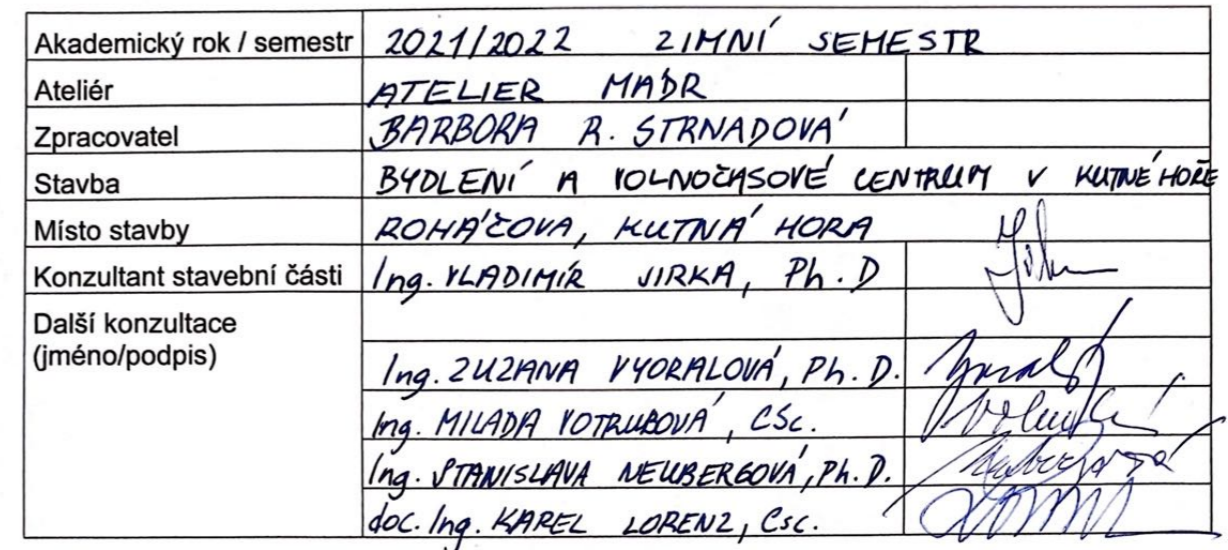 Akademický rok / semestr 2021/2022 ZIMNÍ SEMESTR
Ateliér ATELIER MÁDR
Zpracovatel BARBORA R. STRNADOVÁ
Stavba BYDLENÍ A VOLNOČASOVÉ CENTRUM V KUTNÉ HOŘE
Místo stavby ROHÁČOVA, KUTNÁ HORA
Konzultant stavební části Ing. VLADIMÍR JIRKA, Ph.D
Další konzultace
(jméno/podpis)
Ing. ZUZANA VYORALOVÁ, Ph.D.
Ing. MILADA VOTRUBOVÁ, CSc.
Ing. STANISLAVA NEUBERGOVÁ, Ph.D.
doc. Ing. KAREL LORENZ, Csc.